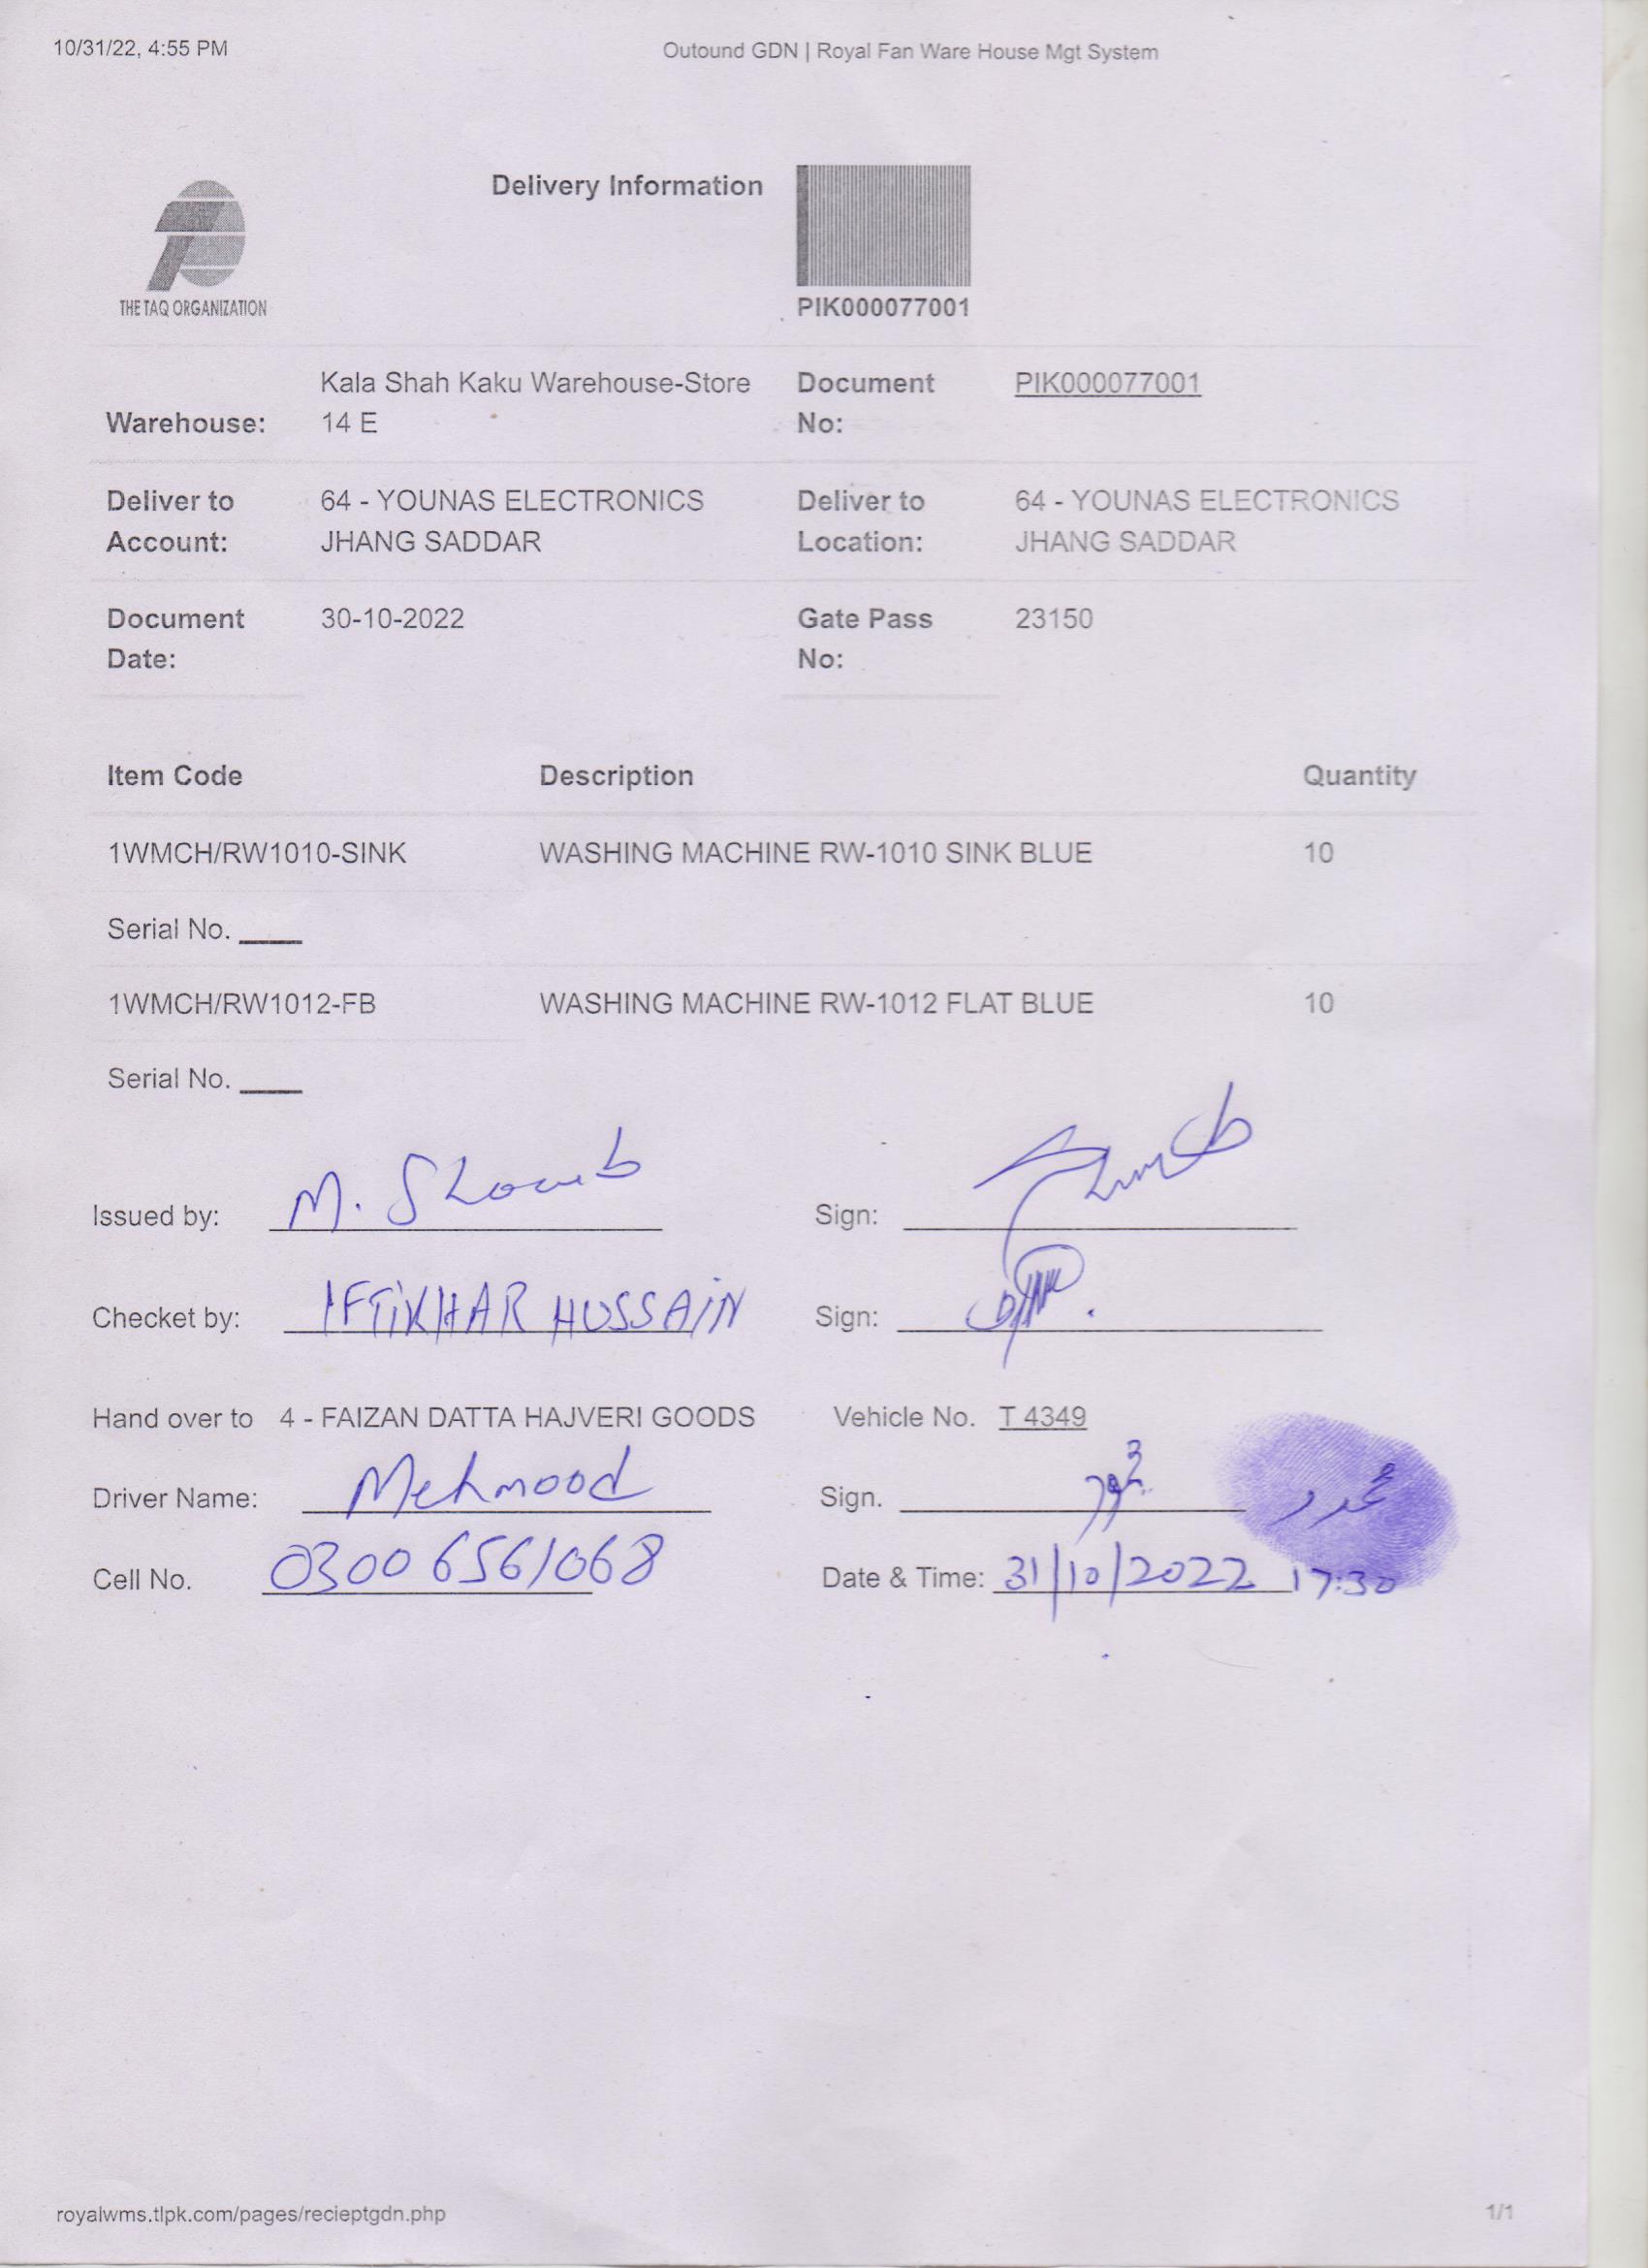 10/31/22, 4:55 PM
Outound GDN | Royal Fan Ware House Mgt System
Delivery Information
THE TAQ ORGANIZATION
PIK000077001
Warehouse: Kala Shah Kaku Warehouse-Store 14 E
Document No: PIK000077001
Deliver to Account: 64 - YOUNAS ELECTRONICS JHANG SADDAR
Deliver to Location: 64 - YOUNAS ELECTRONICS JHANG SADDAR
Document Date: 30-10-2022
Gate Pass No: 23150
Item Code Description Quantity
1WMCH/RW1010-SINK WASHING MACHINE RW-1010 SINK BLUE 10
Serial No. ____
1WMCH/RW1012-FB WASHING MACHINE RW-1012 FLAT BLUE 10
Serial No. ____
Issued by: M. Shoaib Sign:
Checket by: IFTIKHAR HUSSAIN Sign:
Hand over to 4 - FAIZAN DATTA HAJVERI GOODS Vehicle No. T 4349
Driver Name: Mehmood Sign. محمود
Cell No. 0300 6561068 Date & Time: 31/10/2022 17:30
royalwms.tlpk.com/pages/recieptgdn.php
1/1